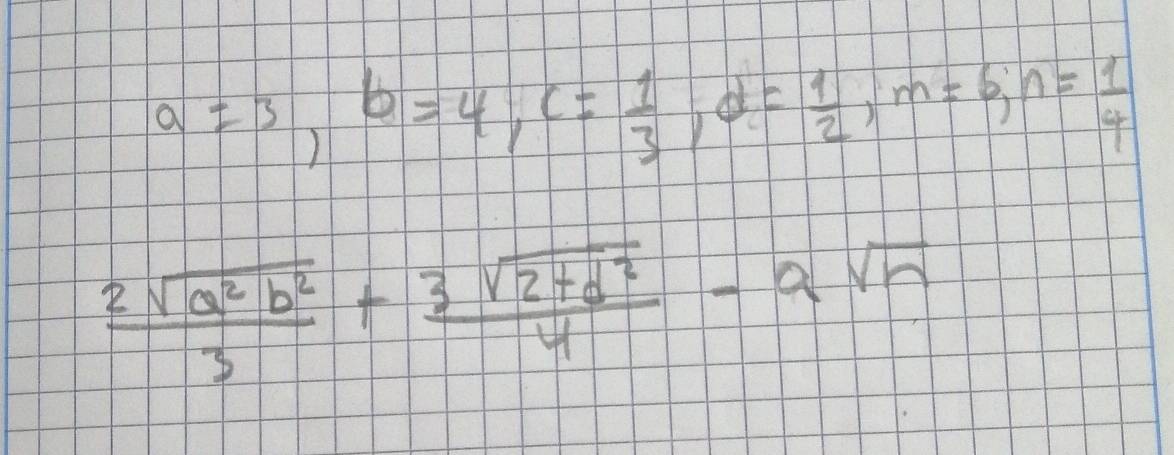 a = 3, b = 4, c = 1/3, d = 1/2, m = 6, n = 1/4
2√(a² b²)/3 + 3√(2+d²)/4 - a√n